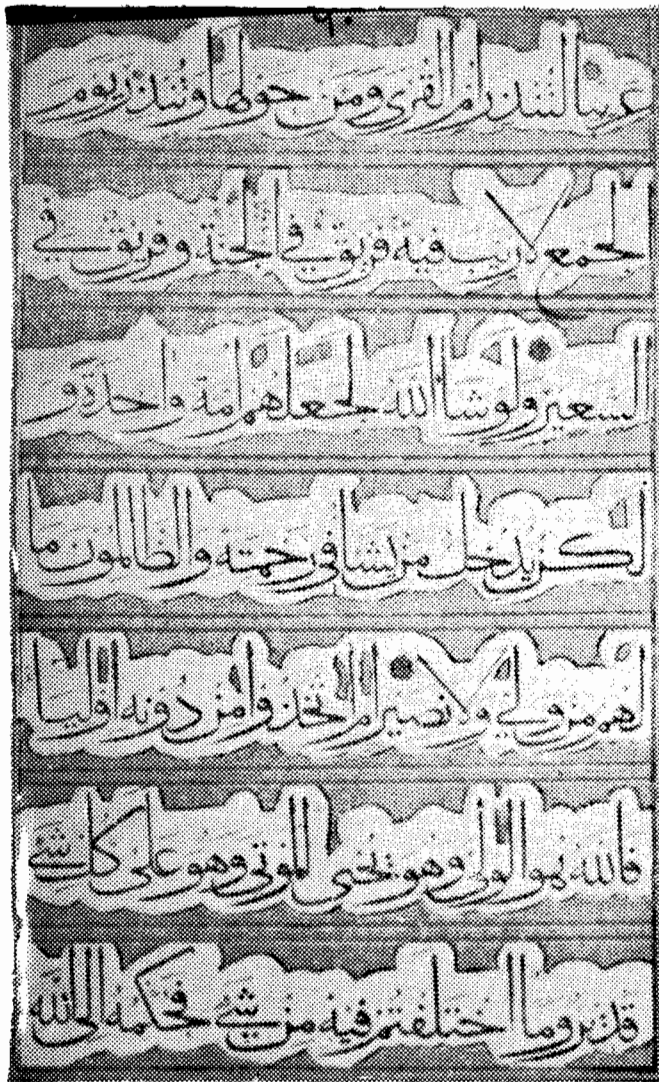 ٩٠
عربيا لتنذر ام القرى ومن حولها وتنذر يوم
الجمع لا ريب فيه فريق في الجنة وفريق في
السعير ولو شا الله لجعلهم امة واحدة و
لكن يدخل من يشا في رحمته والظالمون ما
لهم من ولي ولا نصير ام اتخذوا من دونه اوليا
فالله هو الولي وهو يحيى الموتى وهو على كل شئ
قدير وما اختلفتم فيه من شئ فحكمه الى الله